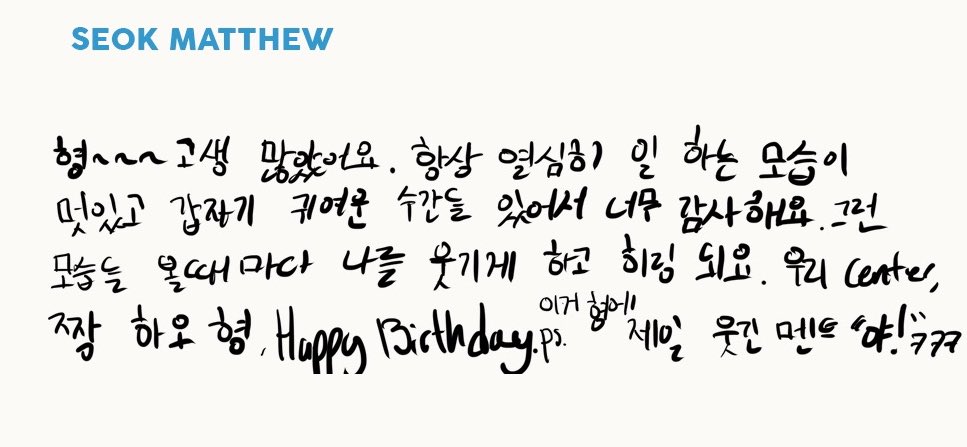 SEOK MATTHEW
형~~~ 고생 많았어요. 항상 열심히 일 하는 모습이
멋있고 갑자기 귀여운 수간들 있어서 너무 감사해요. 그런
모습들 볼때마다 나를 웃기게 하고 힐링 되요. 우리 center,
짱 하오 형, Happy Birthday. ps. 이거 형에 제일 웃긴 멘트 "야!" ㅋㅋㅋ